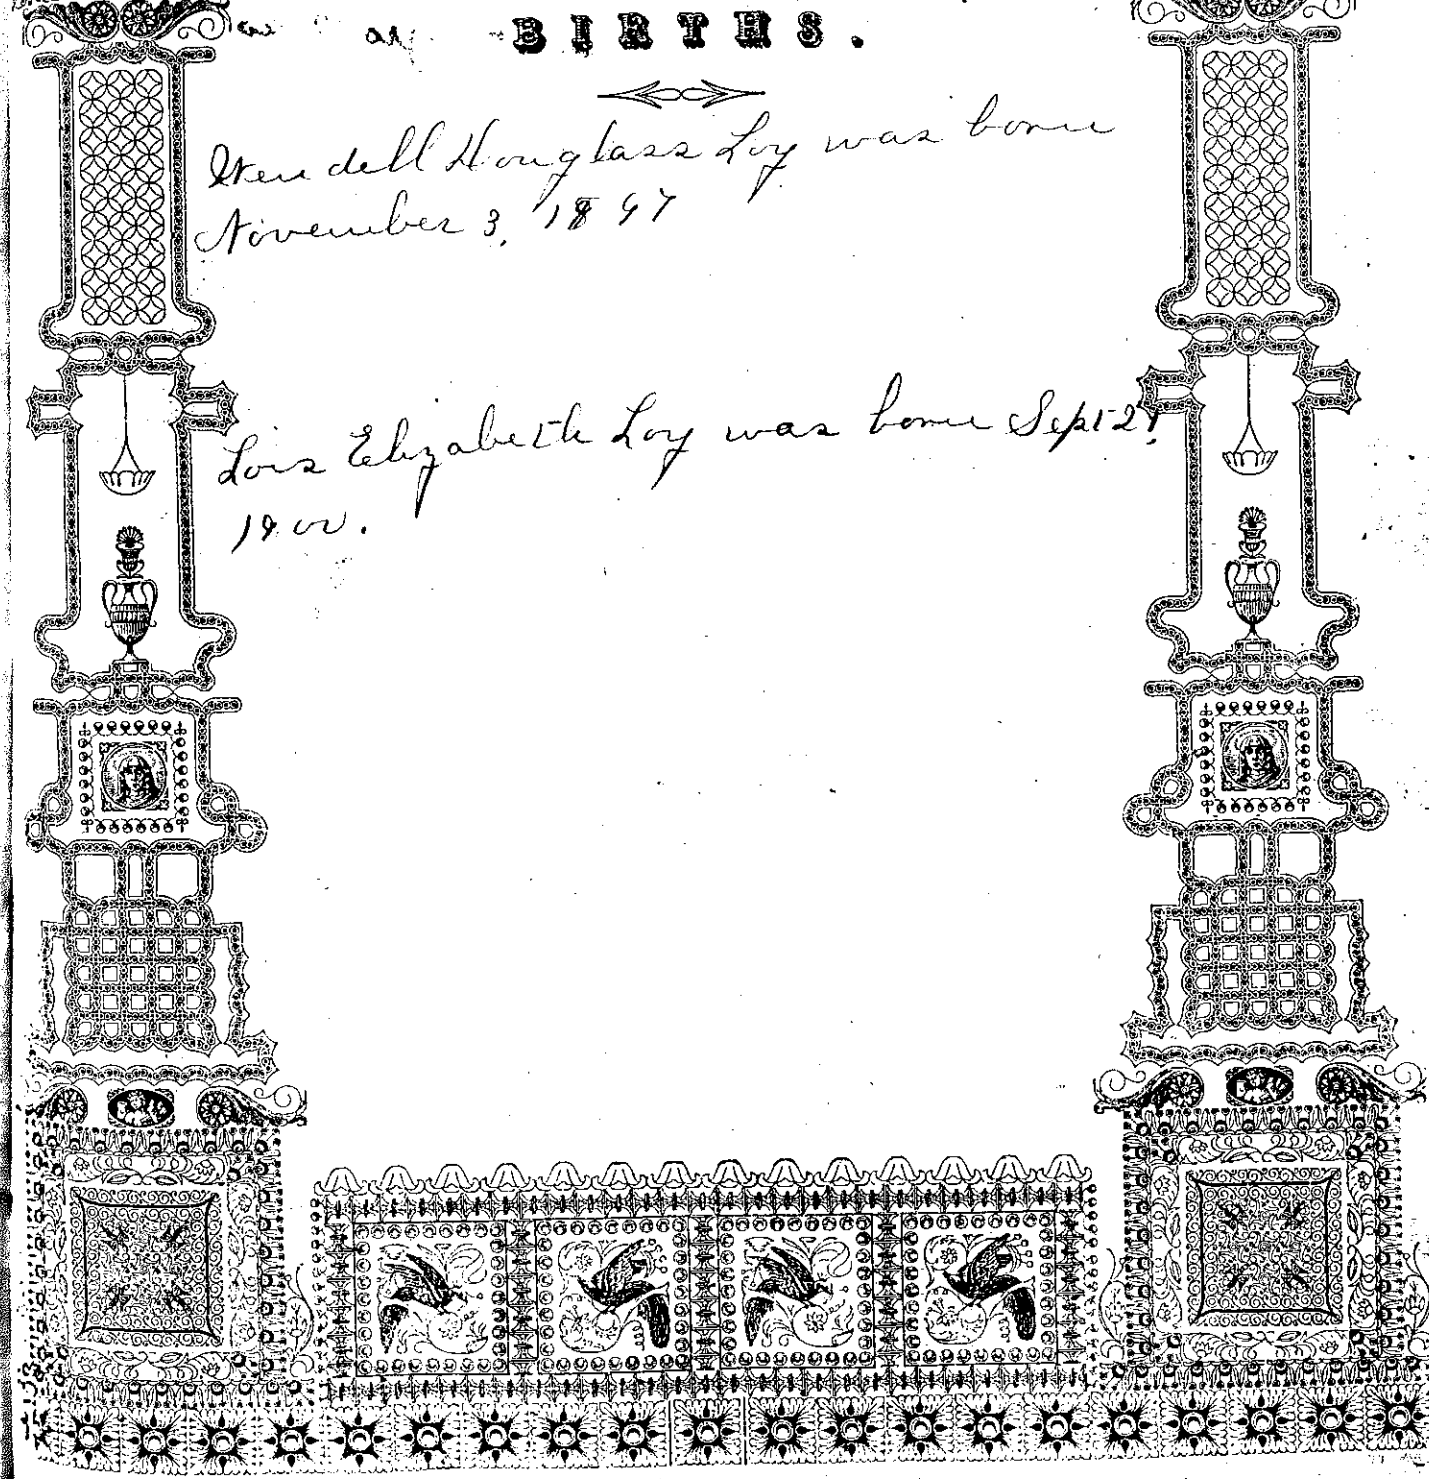 BIRTHS.
Wendell Douglass Loy was born
November 3, 1897
Lois Elizabeth Loy was born Sept 21
1900.